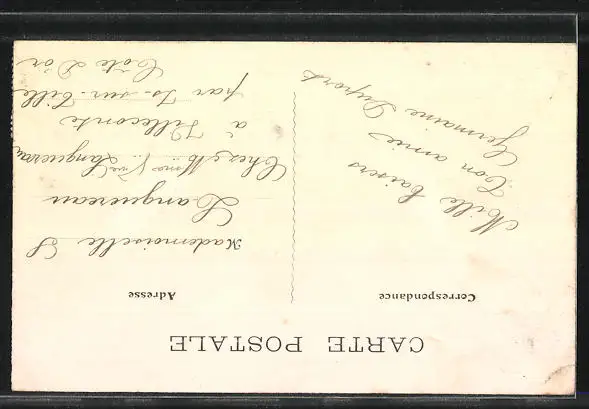 CARTE POSTALE
Correspondance
Mille baisers
Ton amie
Germaine Duport
Adresse
Mademoiselle S
Languereau
Chez Mme Vve Languereau
à Villecomte
par Is-sur-Tille
Côte D'or